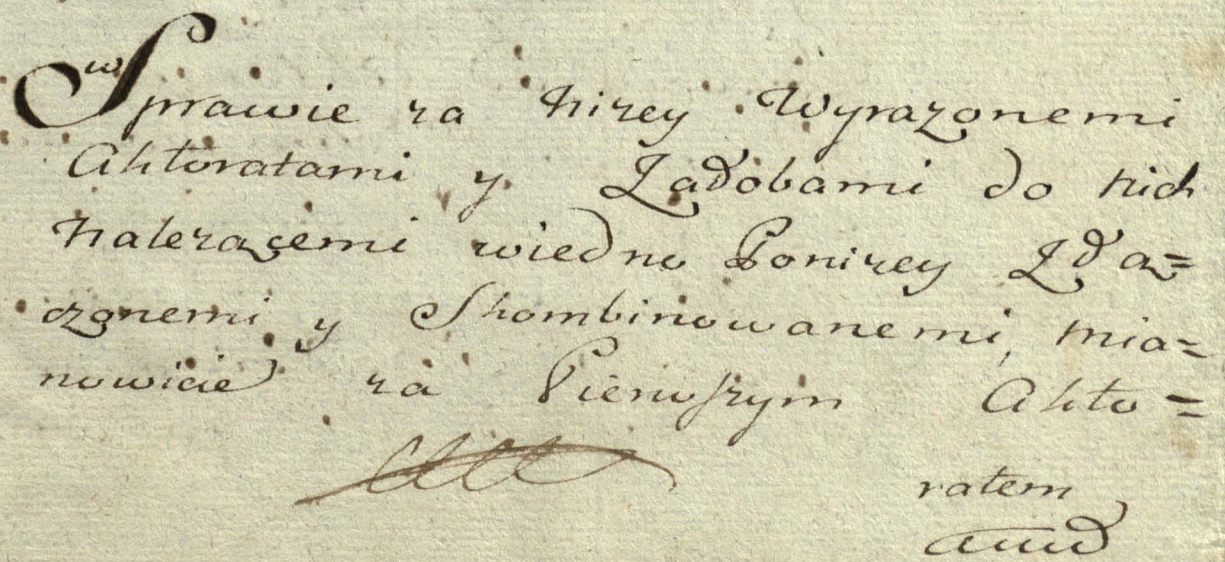 w Sprawie za niżey Wyrażonemi
Aktoratami y Żałobami do nich
należącemi wiedno Poniżey Złą=
czonemi y Skombinowanemi, mia=
nowicie za Pierwszym Akto=
ratem